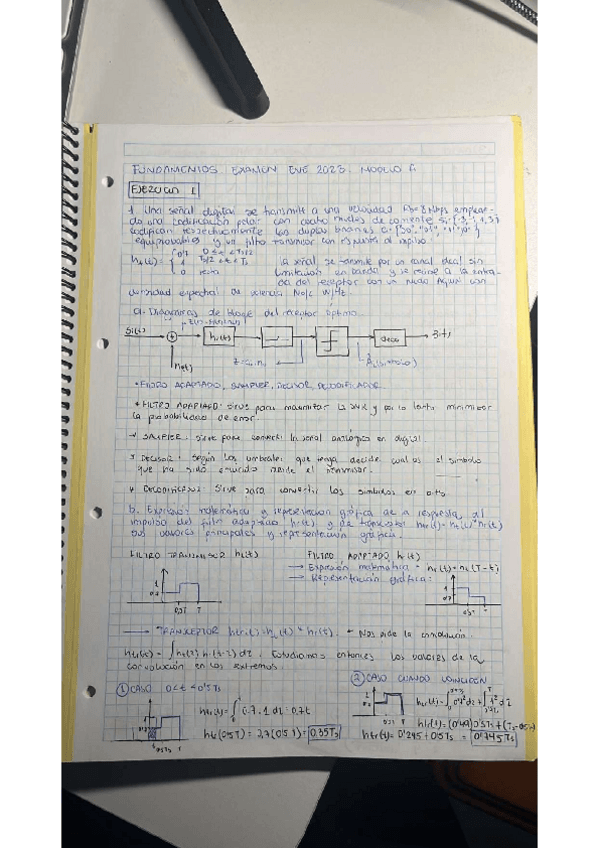 FUNDAMENTOS EXAMEN ENE 2023. MODELO A
EJERCICIO 1
1. Una señal digital se transmite a una velocidad Rb=8Mbps emplean-
do una codificación polar con cuatro niveles de corriente Si{-3,-1,1,3}
codifican respectivamente los duplos binarios
equiprobables y un filtro transmisor con respuesta al impulso:
ht(t)= { 0'7 0≤t<Ts/2
1 Ts/2<t<Ts
0 resto
la señal se transmite por un canal ideal sin
limitación en banda y se recibe a la entra-
da del receptor con un ruido AWGN con
densidad espectral de potencia No/2 W/Hz.
a. Diagrama de bloque del receptor óptimo.
Si(t) + hr(t) deco Bits
n(t)
• FILTRO ADAPTADO, SAMPLER, DECISOR, DECODIFICADOR.
* FILTRO ADAPTADO: sirve para maximizar la SNR y por lo tanto minimizar
la probabilidad de error.
* SAMPLER: sirve para convertir la señal analógica en digital
* DECISOR: según los umbrales que tenga decide cual es el símbolo
que ha sido enviado desde el transmisor.
* DECODIFICADOR: Sirve para convertir los símbolos en bits
b. Expresión matemática y representación gráfica de la respuesta al
impulso del filtro adaptado hr(t) y de transceptor htr(t)=ht(t)*hr(t)
sus valores principales y representación gráfica.
FILTRO TRANSMISOR ht(t)
FILTRO ADAPTADO hr(t)
→ Expresión matemática = hr(t)=ht(T-t)
→ Representación gráfica:
1
0'7
0'5T T
1
0'7
0'5T T
→ TRANSCEPTOR htr(t)=ht(t)*hr(t). Nos pide la convolución.
Estudiamos entonces los valores de la
convolución en los extremos.
① CASO 0<t<0'5Ts
htr(t)=∫ 0'7·1 dz = 0'7t
htr(0'5T) = 0,7(0'5T) = 0'35Ts
② CASO CUANDO COINCIDEN
htr(t)=∫ 0'7² dz + ∫ 1² dz
htr(t)= (0'49)0'5Ts + (Ts-0'5Ts)
htr(t)= 0'245+0'5Ts = 0'745Ts